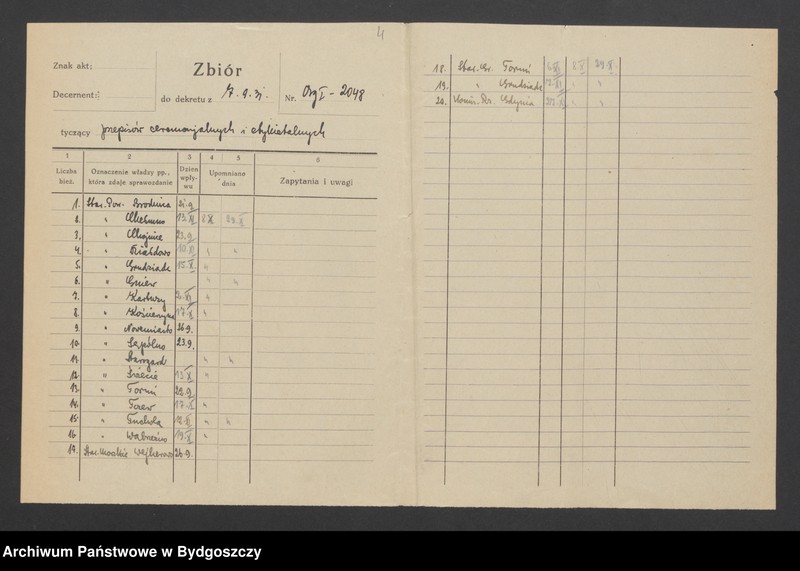 4
Znak akt:
Zbiór
Decernent:
do dekretu z 7.9.31. Nr. Org I - 2048
tyczący przepisów ceremonjalnych i etykietalnych
1 2 3 4 5 6
Liczba bież. Oznaczenie władzy pp., która zdaje sprawozdanie Dzień wpły-wu Upomniano dnia Zapytania i uwagi
1. Star. Pow. Brodnica 21.9
2. " Chełmno 13.XI 2.X 29.X
3. " Chojnice 23.9
4. " Działdowo 10.XI " "
5. " Grudziądz 15.X "
6. " Gniew " "
7. " Kartuzy "
8. " Kościerzyna 17.X "
9. " Nowemiasto 26.9.
10. " Sępólno 23.9.
11. " Starogard " "
12. " Świecie 13.X "
13. " Toruń 22.9
14. " Tczew 17.X "
15. " Tuchola 12.XI " "
16. " Wąbrzeźno 19.X "
17. Star. Morskie Wejherowo 26.9.
18. Star. Gr. Toruń 29.X.
19. " Grudziądz " "
20. Komis. Rz. Gdynia " "
Archiwum Państwowe w Bydgoszczy